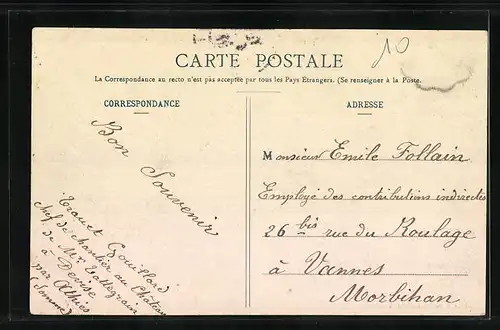 CARTE POSTALE
10
La Correspondance au recto n'est pas acceptée par tous les Pays Etrangers. (Se renseigner à la Poste.
CORRESPONDANCE
Bon
Souvenir
Gouillard
chef de chantier au Château
de Mr
à Devise
par Athies
(Somme)
ADRESSE
Monsieur Emile Follain
Employé des contributions indirectes
26 bis rue du Roulage
à Vannes
Morbihan